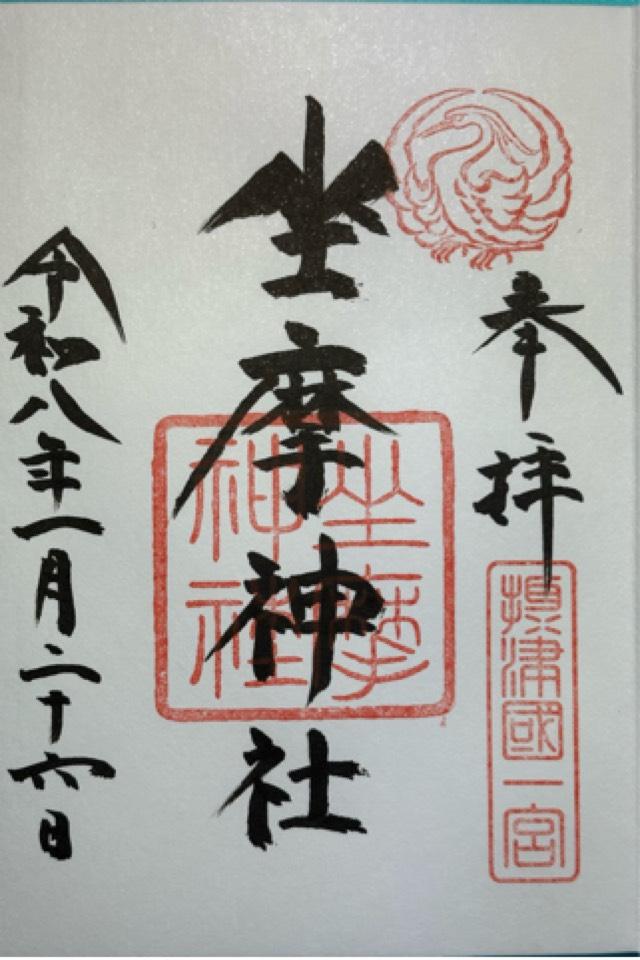 奉拝
攝津國一宮
坐摩神社
坐摩神社
令和八年一月二十六日